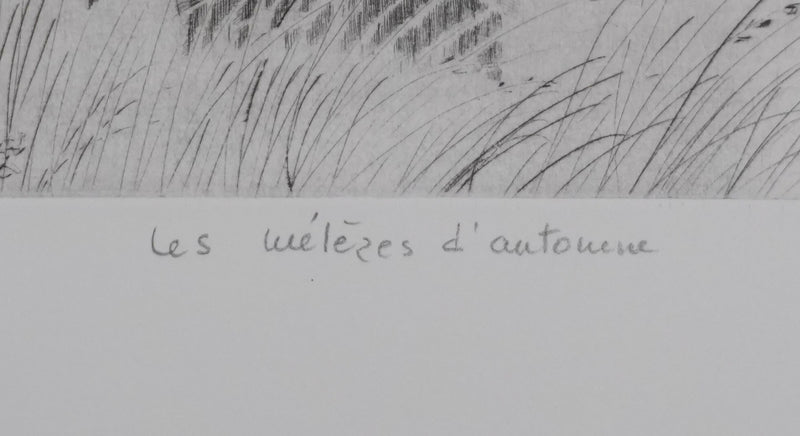 Les mélèzes d'automne